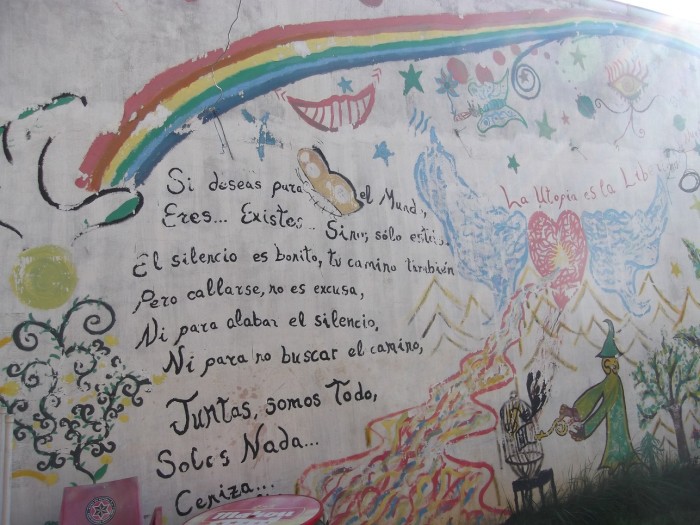 Si deseas para el Mundo,
Eres... Existes... Sino, sólo
El silencio es bonito, tu camino también
Pero callarse, no es excusa,
Ni para alabar el silencio,
Ni para no buscar el camino,
Juntas, somos Todo,
Solas Nada...
Ceniza...
La Utopia esta